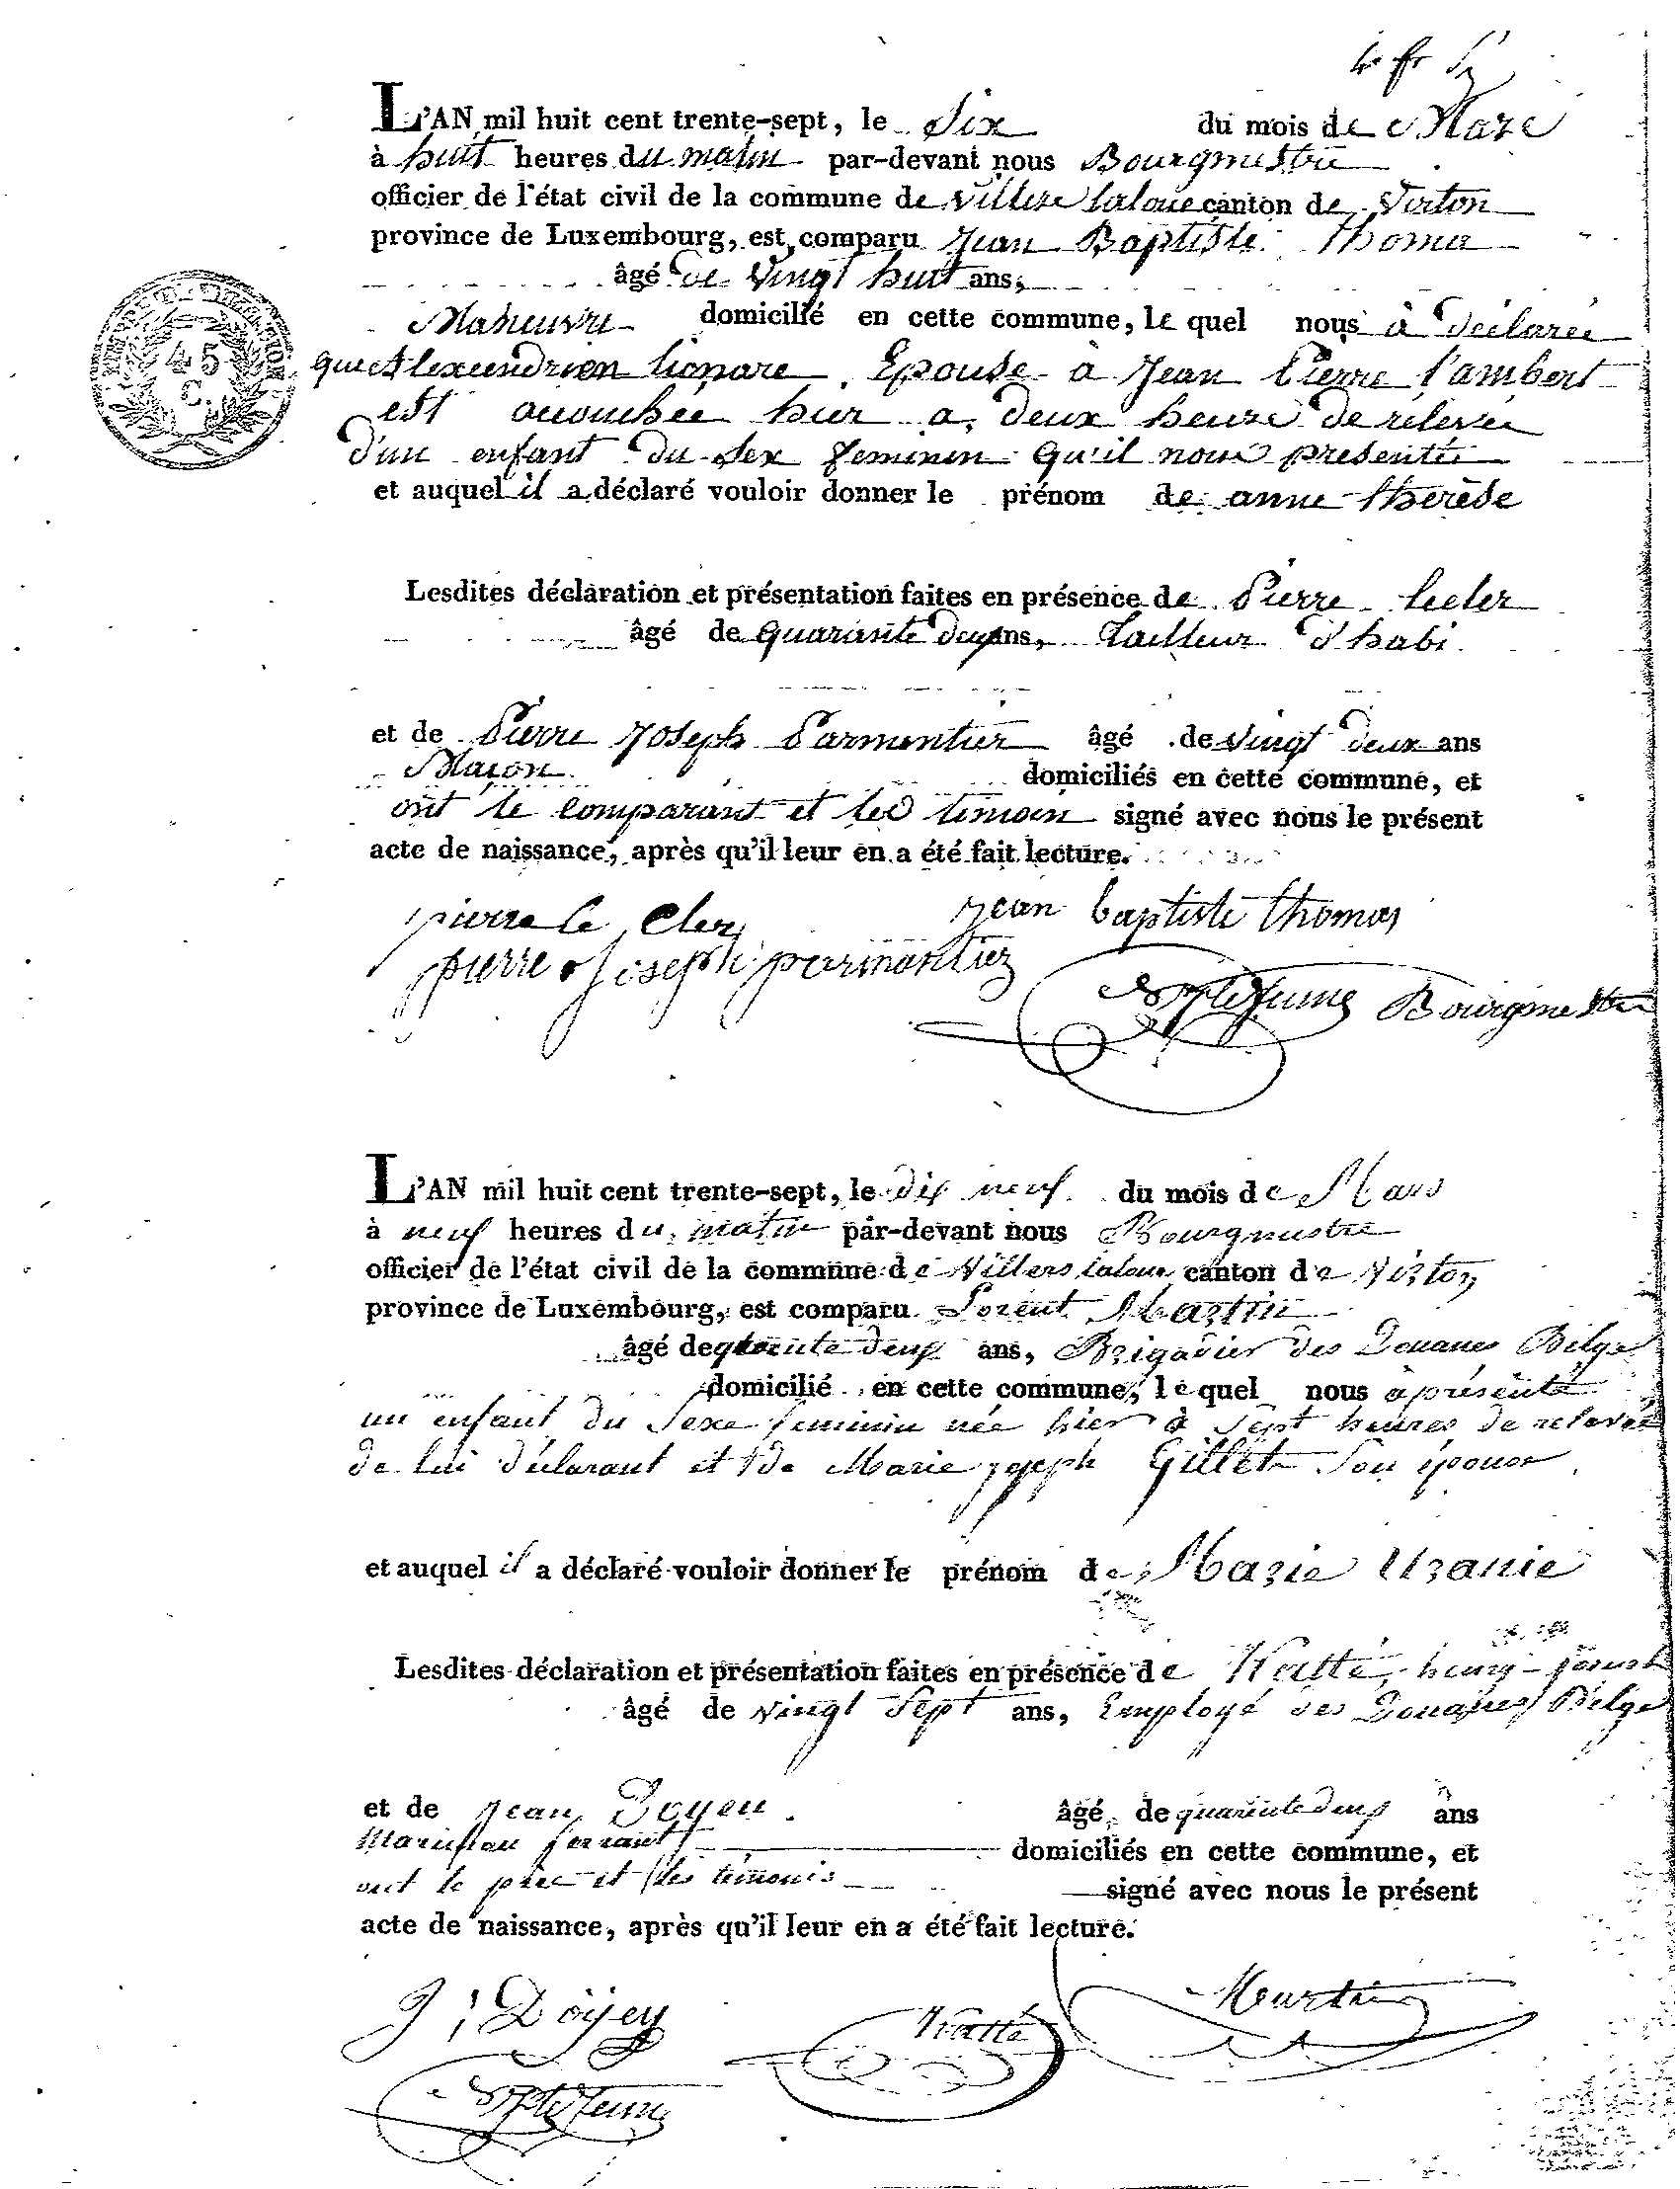 4e f.
L'AN mil huit cent trente-sept, le Six du mois de Mars
à huit heures du matin par-devant nous Bourgmestre
officier de l'état civil de la commune de Villers laloue canton de Virton
province de Luxembourg, est comparu Jean Baptiste Thomas
âgé de vingt huit ans,
Maneuvre domicilié en cette commune, le quel nous à déclarée
que Alexendrien Epouse à Jean Pierre Lambert
est acouchée hier a deux heure de relevée
d'un enfant du sex feminin qu'il nous presentée
et auquel il a déclaré vouloir donner le prénom de anne therèse
Lesdites déclaration et présentation faites en présence de Pierre Lecler
âgé de quarante deux ans, tailleur d'habi
et de Pierre Joseph Parmentier âgé de vingt deux ans
Maçon domiciliés en cette commune, et
ont le comparant et les temoin signé avec nous le présent
acte de naissance, après qu'il leur en a été fait lecture.
pierre le Cler jean baptiste thomas
pierre joseph parmantier
Bourgmestre
45
C.
L'AN mil huit cent trente-sept, le dix neuf du mois de Mars
à neuf heures du matin par-devant nous Bourgmestre
officier de l'état civil de la commune de Villers laloue canton de Virton
province de Luxembourg, est comparu Lorent Martin
âgé de quarente deux ans, Brigadier des Douanes Belge
domicilié en cette commune, le quel nous à présenté
un enfant du Sexe feminin née hier à Sept heures de relevée
de lui déclarant et de Marie joseph Gillet Son épouse
et auquel il a déclaré vouloir donner le prénom de Marie Uranie
Lesdites déclaration et présentation faites en présence de Watté, henry-
âgé de vingt Sept ans, Employé des Douanes Belge
et de Jean Doyen âgé de quarente deux ans
Marechau ferrant domiciliés en cette commune, et
ont le père et les témoins signé avec nous le présent
acte de naissance, après qu'il leur en a été fait lecture.
J: Doyen Watté Martin